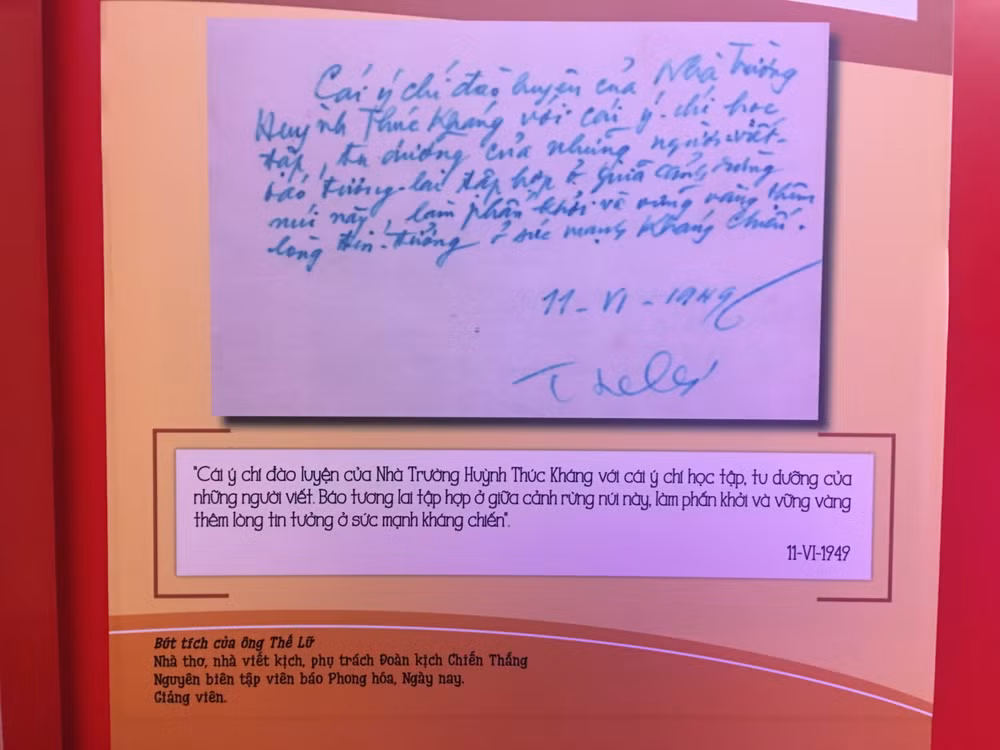 Cái ý chí đào luyện của Nhà Trường
Huỳnh Thúc Kháng với cái ý-chí học
tập, tu dưỡng của những người viết-
báo tương-lai tập hợp ở giữa cảnh rừng
núi này, làm phấn khởi và vững vàng thêm
lòng tin-tưởng ở sức mạnh Kháng Chiến.
11-VI-1949
"Cái ý chí đào luyện của Nhà Trường Huỳnh Thúc Kháng với cái ý chí học tập, tu dưỡng của
những người viết. Báo tương lai tập hợp ở giữa cảnh rừng núi này, làm phấn khởi và vững vàng
thêm lòng tin tưởng ở sức mạnh kháng chiến".
11-VI-1949
Bút tích của ông Thế Lữ
Nhà thơ, nhà viết kịch, phụ trách Đoàn kịch Chiến Thắng
Nguyên biên tập viên báo Phong hóa, Ngày nay.
Giảng viên.